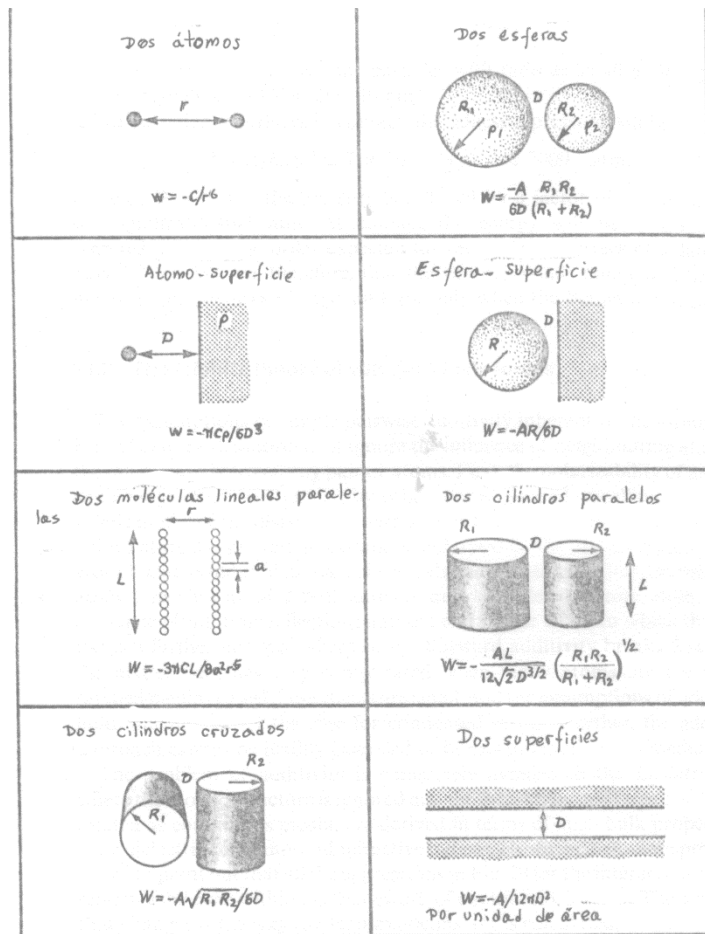 Dos átomos
r
w = -C/r⁶
Dos esferas
R₁
ρ₁
D
R₂
ρ₂
W = -A/6D R₁R₂/(R₁ + R₂)
Atomo - superficie
D
ρ
w = -πCρ/6D³
Esfera - superficie
R
D
W = -AR/6D
Dos moléculas lineales parale-
las
r
L
a
W = -3πCL/8a²r⁵
Dos cilindros paralelos
R₁
D
R₂
L
W = - AL/12√2 D³/² (R₁R₂/R₁+R₂)¹/²
Dos cilindros cruzados
R₁
D
R₂
W = -A√R₁R₂/6D
Dos superficies
D
W = -A/12πD²
por unidad de área